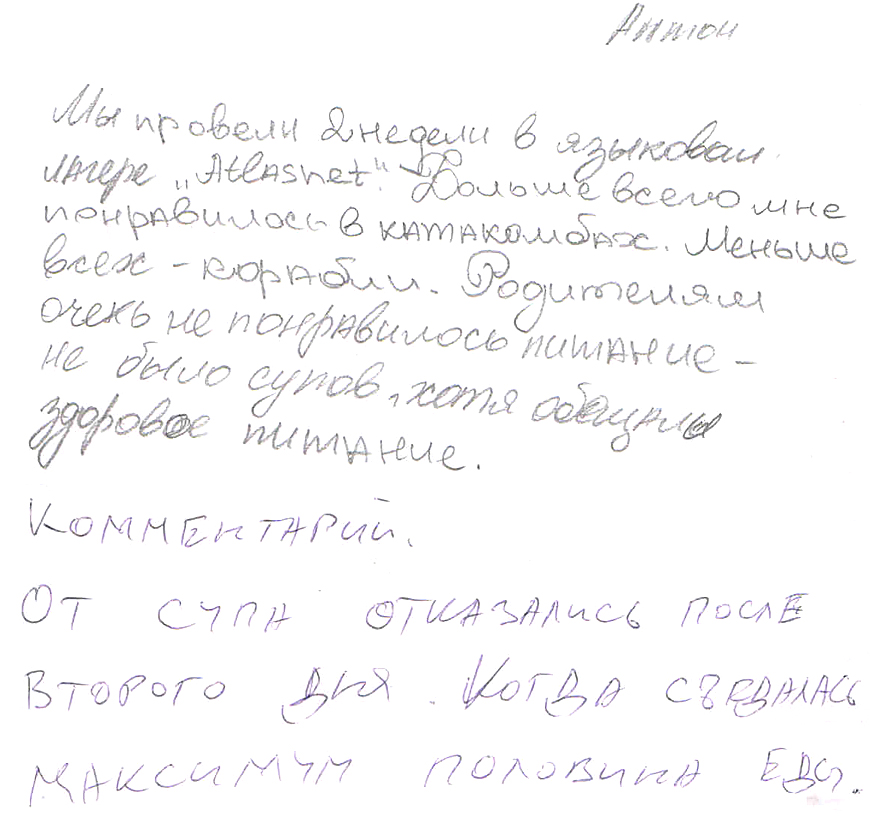 Антон
Мы провели 2 недели в языковом
лагере „Atlasnet". Больше всего мне
понравилось в катакомбах. Меньше
всех - корабли. Родителям
очень не понравилось питание -
не было супов, хотя обещали
здоровое питание.
КОММЕНТАРИЙ.
ОТ СУПА ОТКАЗАЛИСЬ ПОСЛЕ
ВТОРОГО ДНЯ. КОГДА СЪЕДАЛАСЬ
МАКСИМУМ ПОЛОВИНА ЕДЫ.